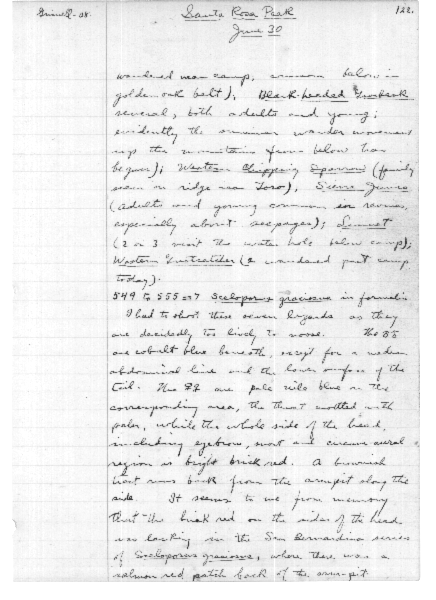 Grinnell-08. Santa Rosa Peak 122.
June 30
wandered near camp, common below in
golden oak belt); Black-headed Grosbeak
several, both adults and young;
evidently the summer wander movement
up the mountains from below has
begun); Western Chipping Sparrow (family
seen on ridge near Toro), Sierra Junco
(adults and young common in ravines,
especially about seepages); Linnet
(2 or 3 visit the water hole below camp);
Western Gnatcatcher (2 wandered past camp
today).
549 to 555 = 7 Sceloporus graciosus in formalin.
I had to shoot these seven lizards as they
are decidedly too lively to noose. The ♂♂
are cobalt blue beneath, except for a median
abdominal line and the lower surface of the
tail. The ♀♀ are pale nile blue on the
corresponding area, the throat mottled with
paler, while the whole side of the head,
including eyebrow, snout and circum aural
region is bright brick red. A brownish
runs back from the armpit along the
side. It seems to me from memory
that the brick red on the sides of the head
was lacking in the San Bernardino series
of Sceloporus graciosus, where there was a
salmon red patch back of the arm-pit